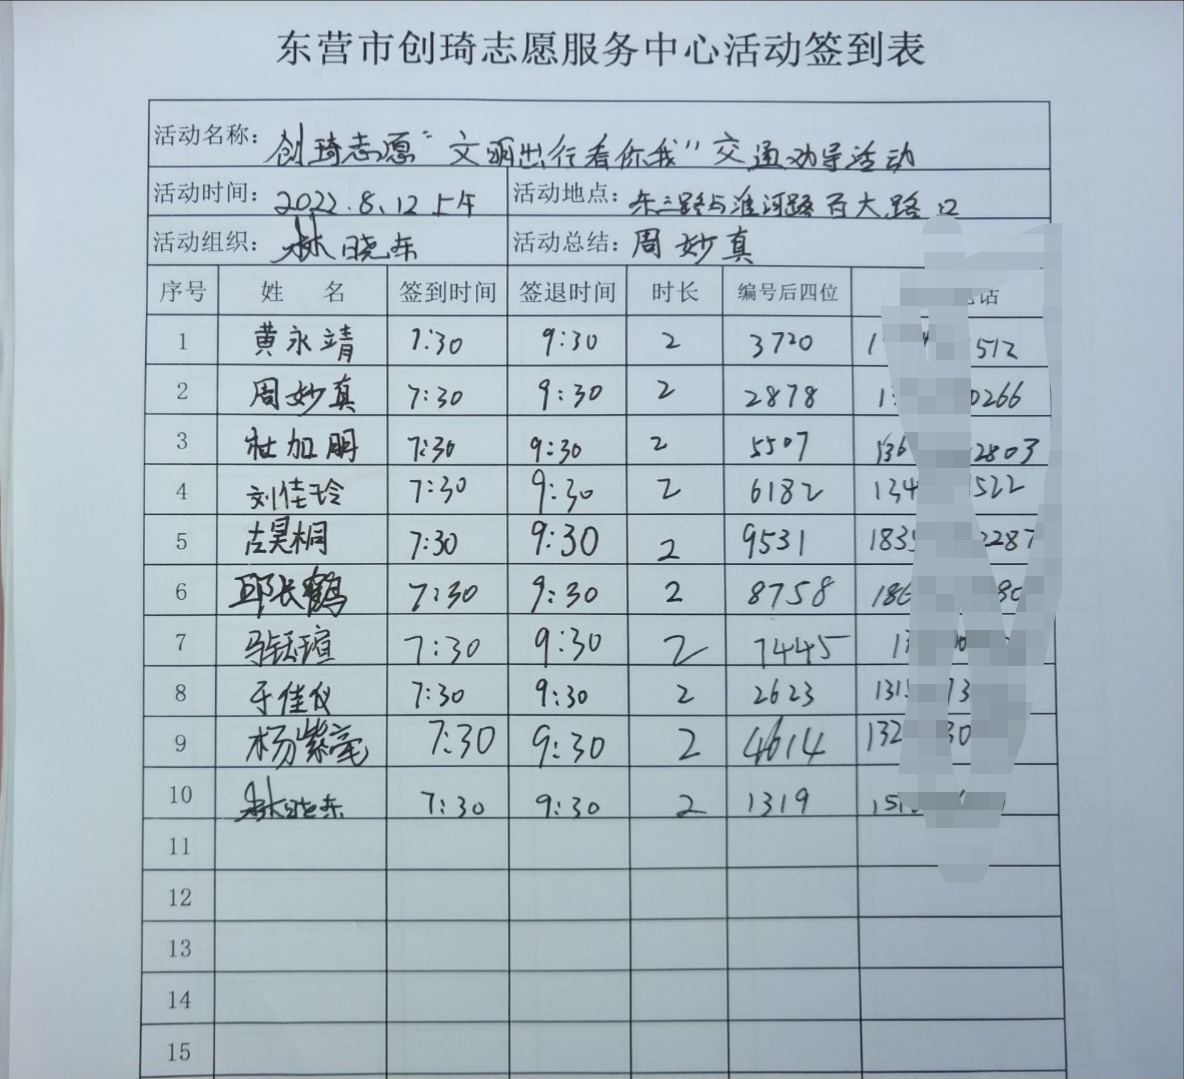 东营市创琦志愿服务中心活动签到表
活动名称: 创琦志愿“文明出行看你我”交通劝导活动
活动时间: 2022.8.12上午 活动地点: 东三路与淮河路百大路口
活动组织: 林晓东 活动总结: 周妙真
序号 姓 名 签到时间 签退时间 时长 编号后四位 话
1 黄永靖 7:30 9:30 2 3720 1 512
2 周妙真 7:30 9:30 2 2878 1 0266
3 杜加明 7:30 9:30 2 5507 136 2803
4 刘佳玲 7:30 9:30 2 6182 134 522
5 古昊桐 7:30 9:30 2 9531 183 2287
6 邱长鹤 7:30 9:30 2 8758 186
7 马钰瑄 7:30 9:30 2 7445 1
8 于佳仪 7:30 9:30 2 2623 131 73
9 杨紫毫 7:30 9:30 2 4614 132 30
10 林晓东 7:30 9:30 2 1319 151
11
12
13
14
15